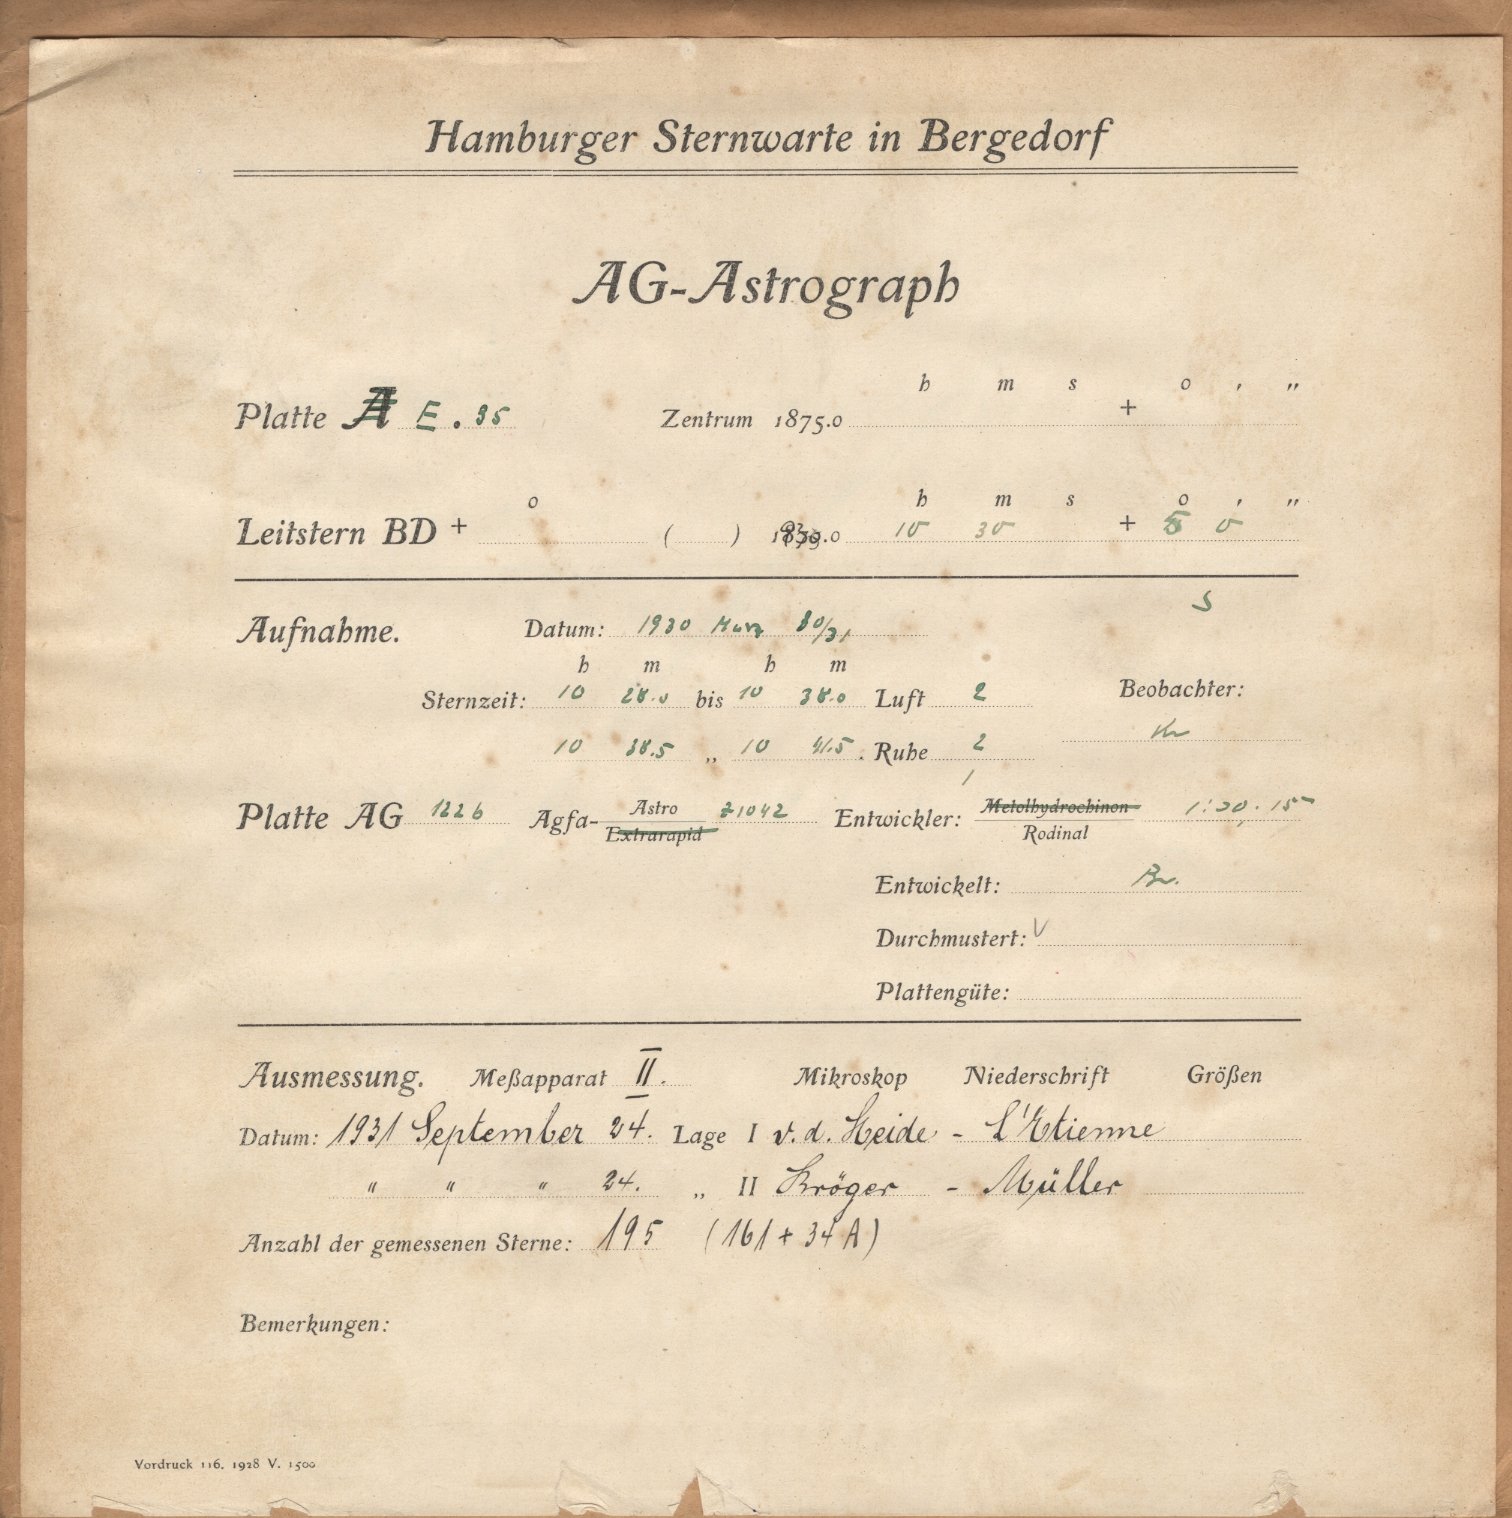 Hamburger Sternwarte in Bergedorf
AG-Astrograph
h m s o , „
Platte A E. 35 Zentrum 1875.0 +
o h m s o , „
Leitstern BD + ( ) .0 10 30 + 5 0
S
Aufnahme. Datum: 1930 März 30/31
h m h m
Sternzeit: 10 28.0 bis 10 38.0 Luft 2 Beobachter:
10 38.5 „ 10 41.5. Ruhe 2
Platte AG 1226 Agfa- Astro Extrarapid Z1042 Entwickler: Metolhydrochinon Rodinal 1:20, 15
Entwickelt:
Durchmustert: V
Plattengüte:
Ausmessung. Meßapparat II. Mikroskop Niederschrift Größen
Datum: 1931 September 24. Lage I v.d. Heide - L'Etienne
" " " 24. „ II Kröger - Müller
Anzahl der gemessenen Sterne: 195 (161 + 34 A)
Bemerkungen:
Vordruck 116. 1928 V. 1500